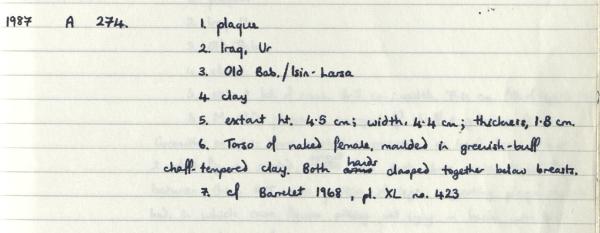 1987 A 274. 1. plaque
2. Iraq, Ur
3. Old Bab./Isin-Larsa
4. clay
5. extant ht. 4.5 cm; width, 4.4 cm; thickness, 1.8 cm.
6. Torso of naked female, moulded in greenish-buff
hands
chaff-tempered clay. Both arms clasped together below breasts.
7. cf Barrelet 1968, pl. XL no. 423